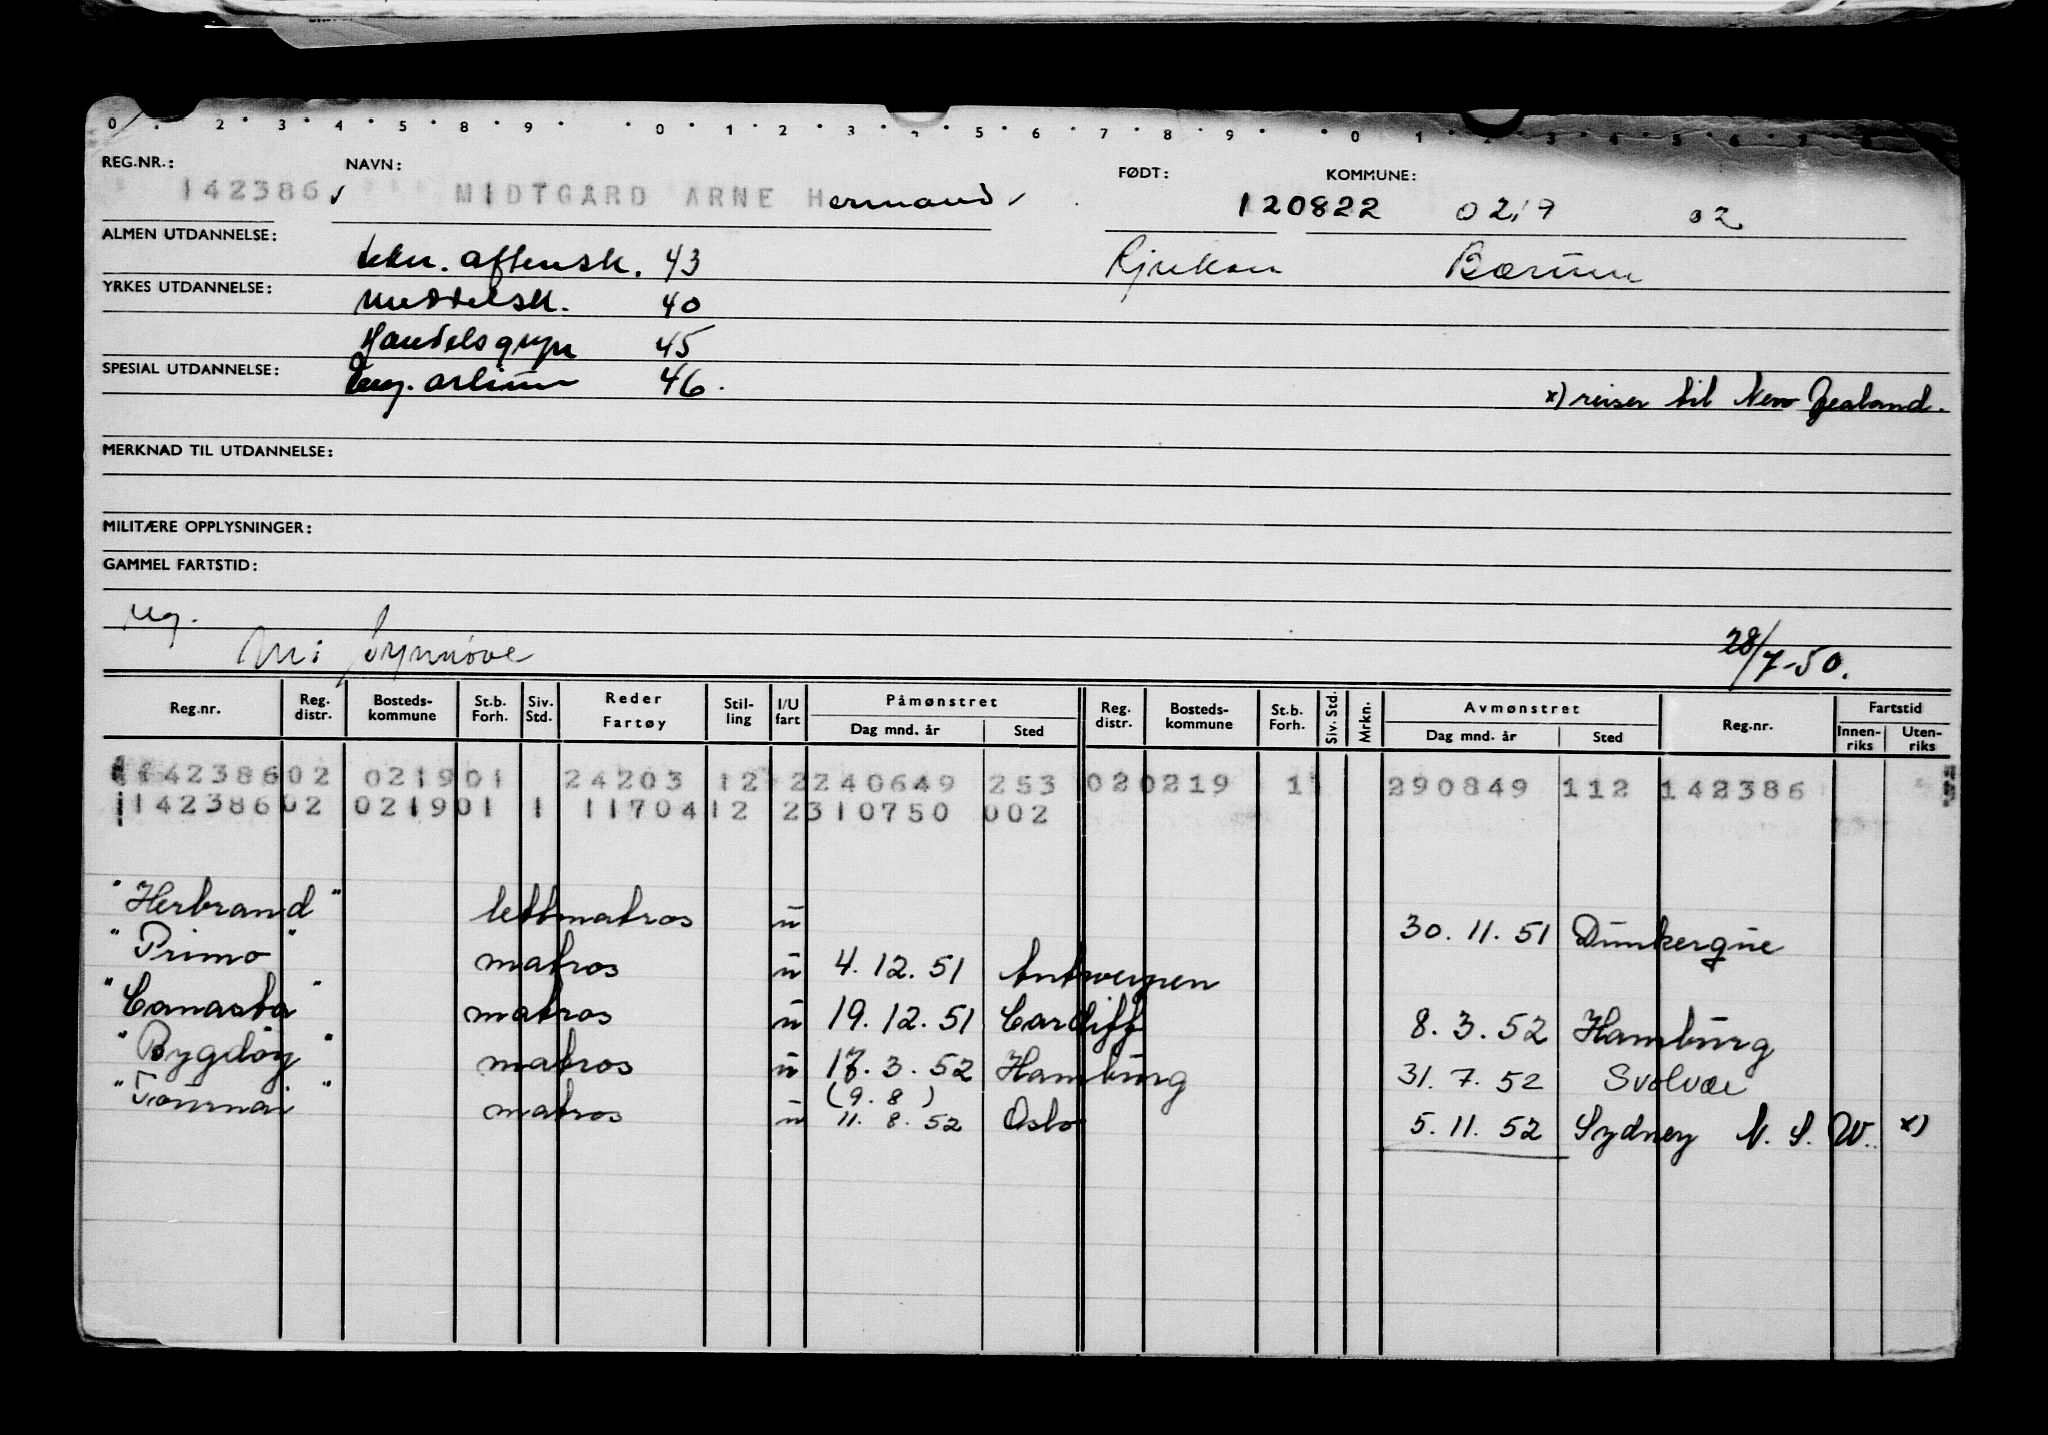 0 . 2 . 3 . 4 . 5 . 8 . 9 . . 0 . 1 . 2 . 3 . 4 . 5 . 6 . 7 . 8 . 9 . . 0 . 1 . 2 . 3 . 4 . 5 . 6 . 7 . 8
REG.NR.: NAVN: FØDT: KOMMUNE:
142386 MIDTGARD ARNE Hermand 120822 0219 02
ALMEN UTDANNELSE: tekn. aftensk. 43 Rjukan Bærum
YRKES UTDANNELSE: middelsk. 40
Handelsgym 45
SPESIAL UTDANNELSE: Eng. artium 46.
x) reiser til New Zealand.
MERKNAD TIL UTDANNELSE:
MILITÆRE OPPLYSNINGER:
GAMMEL FARTSTID:
ug.
M: Synnøve 28/7-50.
Reg.nr. Reg. distr. Bosteds-kommune St.b. Forh. Siv. Std. Reder Fartøy Stil-ling I/U fart Påmønstret Dag mnd. år Sted Reg. distr. Bosteds-kommune St.b. Forh. Siv. Std. Mrkn. Avmønstret Dag mnd. år Sted Reg.nr. Fartstid Innen-riks Uten-riks
142386 02 0219 01 24203 12 2 240649 253 02 0219 1 290849 112 142386
142386 02 0219 01 1 11704 12 2 310750 002
"Herbrand" lettmatros u 30.11.51 Dunkerque
"Primo" matros u 4.12.51 Antwerpen
"Canasta" matros u 19.12.51 Cardiff 8.3.52 Hamburg
"Bygdøy" matros u 17.3.52 Hamburg 31.7.52 Svolvær
(9.8)
"Tournai" matros u 11.8.52 Oslo 5.11.52 Sydney N.S.W. x)